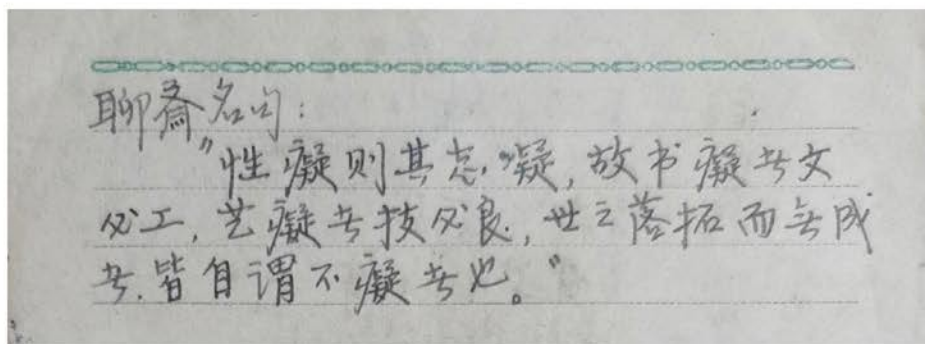 聊斋名句:
"性癡则其志凝,故书癡者文
必工,艺癡者技必良,世之落拓而无成
者.皆自谓不癡者也。"